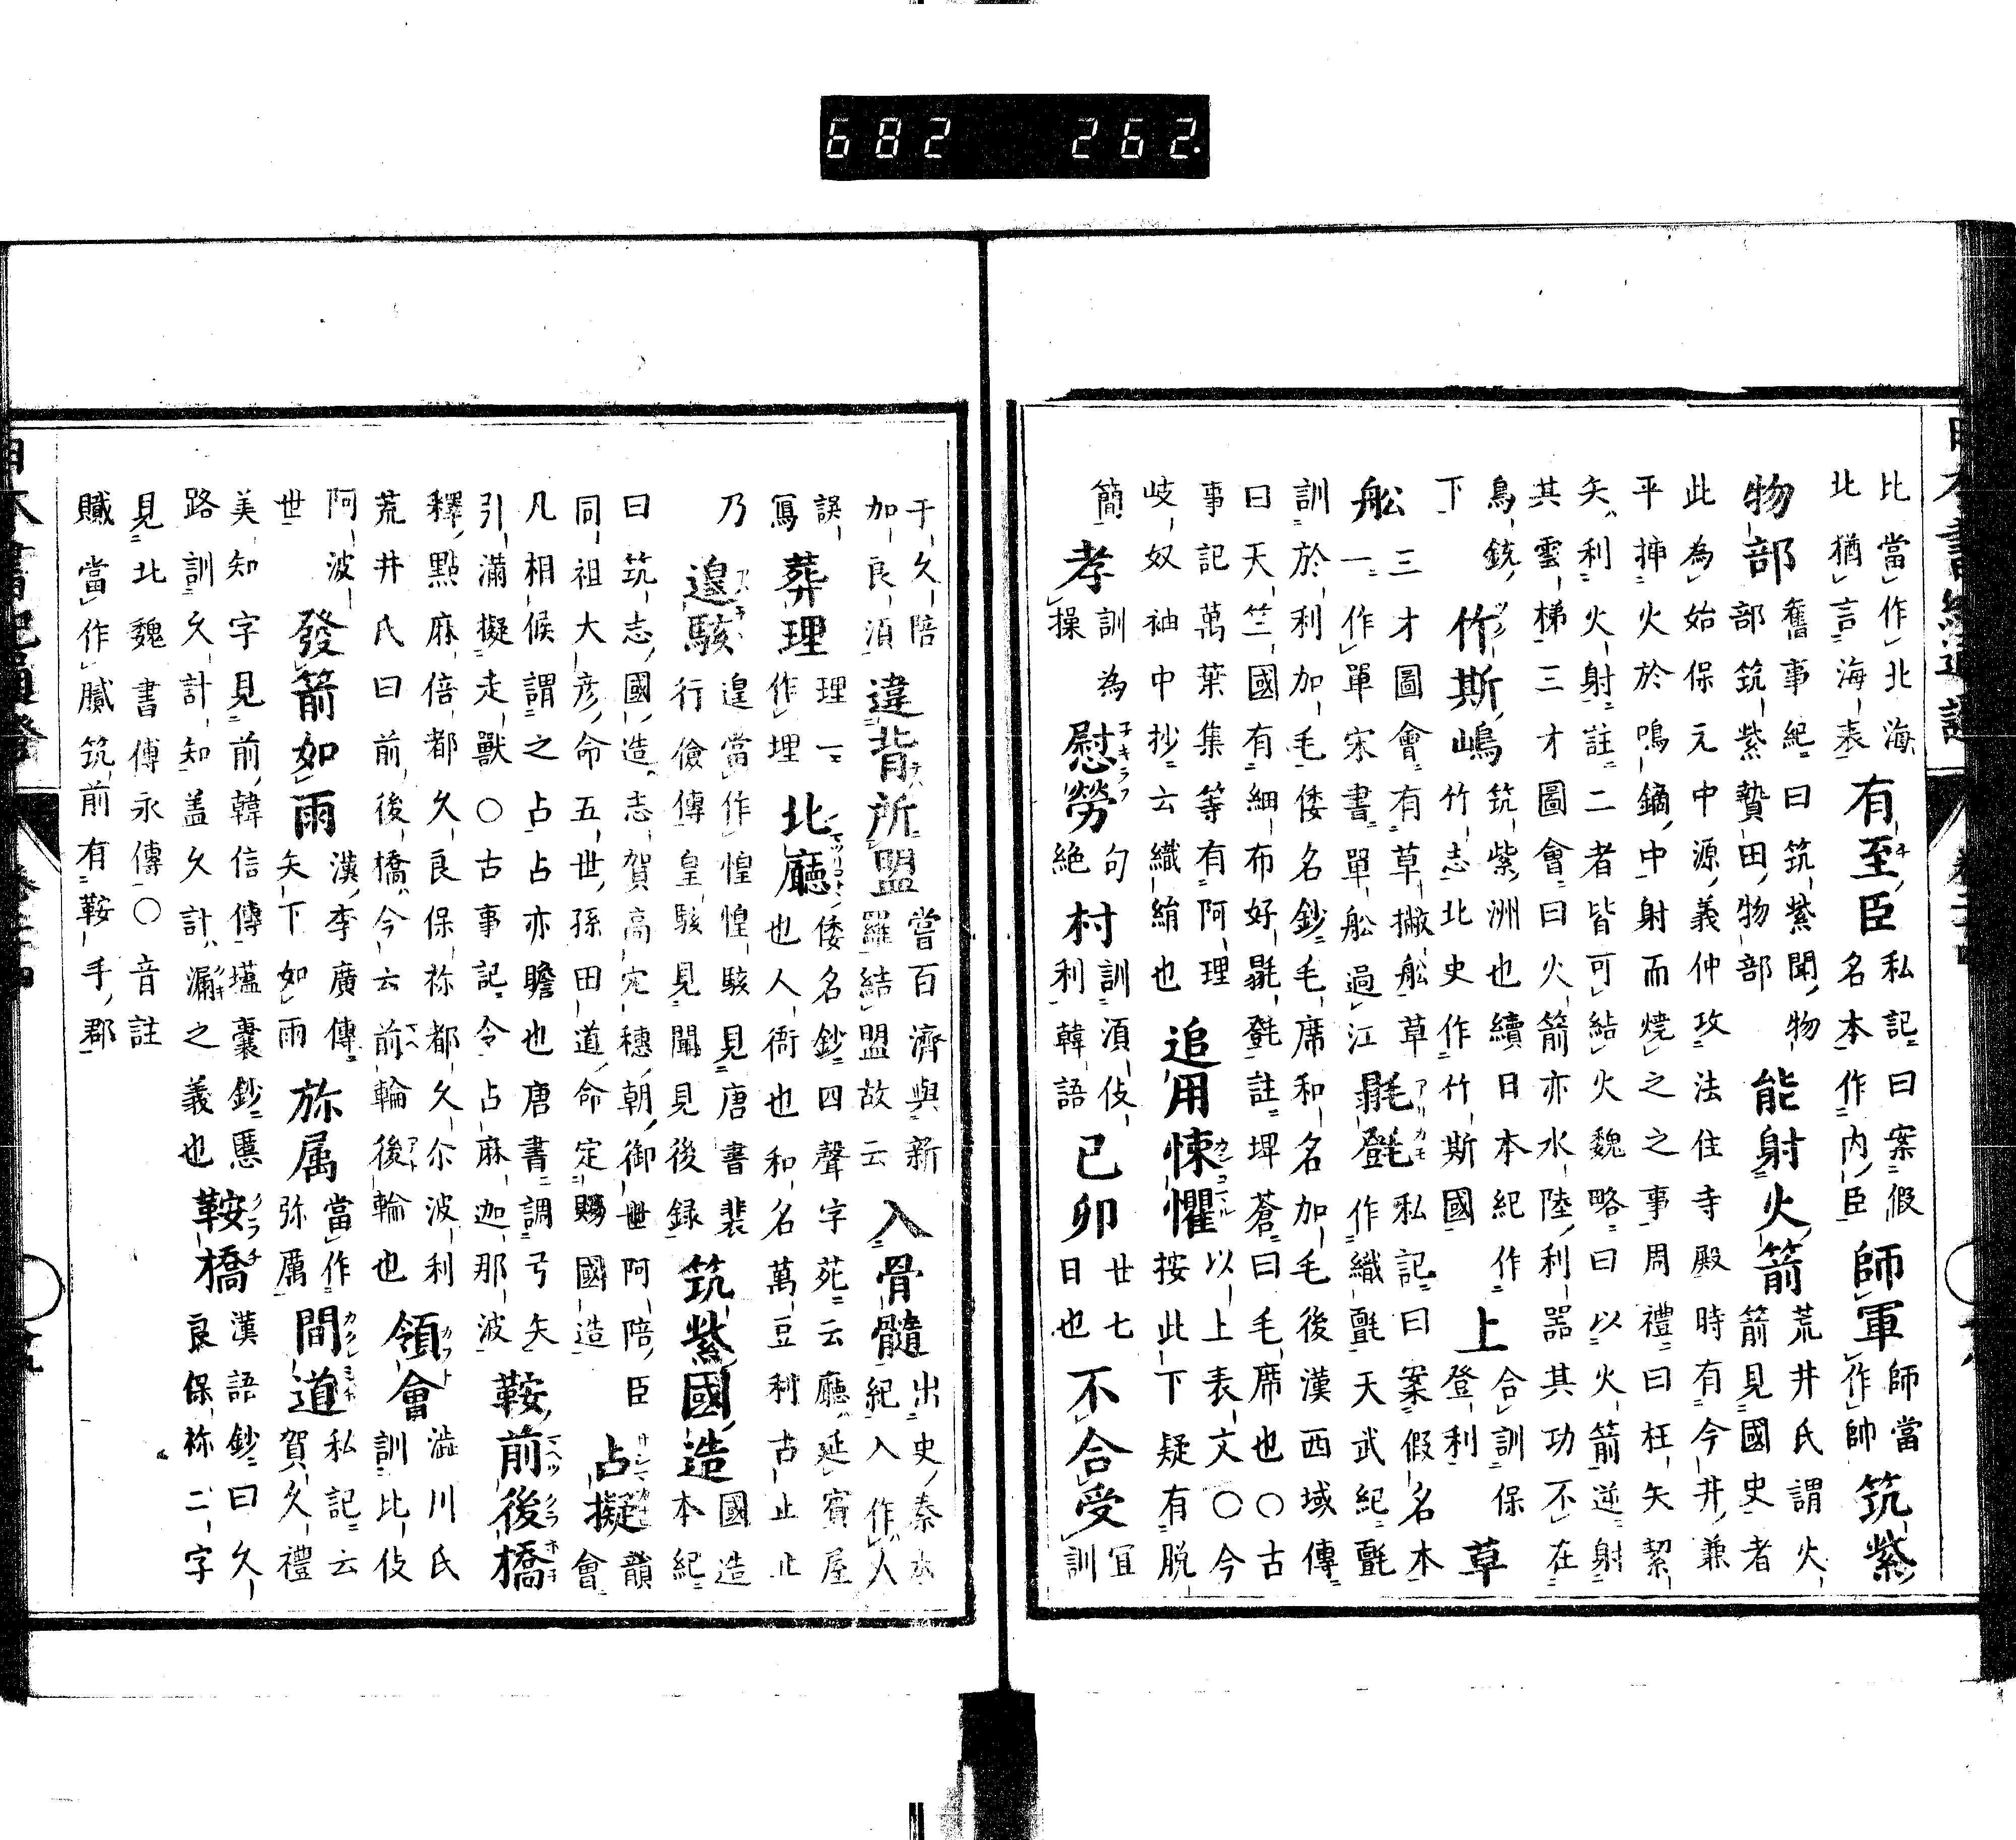 比當作北海北猶言海表有至臣私記曰案假名本作内臣師軍師當作帥筑紫
物部舊事紀曰筑紫聞物部筑紫贄田物部能射火箭荒井氏謂火箭見國史者
此為始保元中源義仲攻法住寺殿時有今井兼平挿火於鳴鏑中射而燒之之事周禮曰枉矢絜
矢利火射註二者皆可結火魏略曰以火箭逆射其雲梯三才圖會曰火箭亦水陸利噐其功不在
鳥銃下竹斯嶋筑紫洲也續日本紀作竹志北史作竹斯國上合訓保登利草
舩三才圖會有草撇舩草一作單宋書單舩過江毾㲪私記曰案假名本作織氈天武紀氈
訓於利加毛倭名鈔毛席和名加毛後漢西域傳曰天竺國有細布好毾㲪註埤蒼曰毛席也○古
事記萬葉集等有阿理岐奴袖中抄云織絹也追用悚懼以上表文○今按此下疑有脱
簡孝訓為操慰勞句絶村訓湏伎利韓語己卯廿七日也不合受冝訓
于久陪加良湏違背所盟嘗百濟與新羅結盟故云入骨髓出史秦本紀入作人
誤寫葬理理一作埋北廳倭名鈔四聲字苑云廳延賓屋也人衙也和名萬豆利古止止
乃遑駭遑當作惶惶駭見唐書裴行儉傳皇駭見聞見後録筑紫國造國造本紀
曰筑志國造志賀高宍穗朝御世阿陪臣同祖大彦命五世孫田道命定賜國造占擬韻會
凡相候謂之占占亦瞻也唐書調弓矢引滿擬走獸○古事記令占麻迦那波鞍前後橋
釋點麻倍都久良保祢都久尒波利荒井氏曰前後橋今云前輪後輪也領會澁川氏訓比伎
阿波世發箭如雨漢李廣傳矢下如雨旀属當作弥厲間道私記云賀久禮
美知字見前韓信傳壒囊鈔惡路訓久計知盖久計漏之義也鞍橋漢語鈔曰久良保祢二字
見北魏書傅永傳○音註贜當作膩筑前有鞍手郡
682 262.